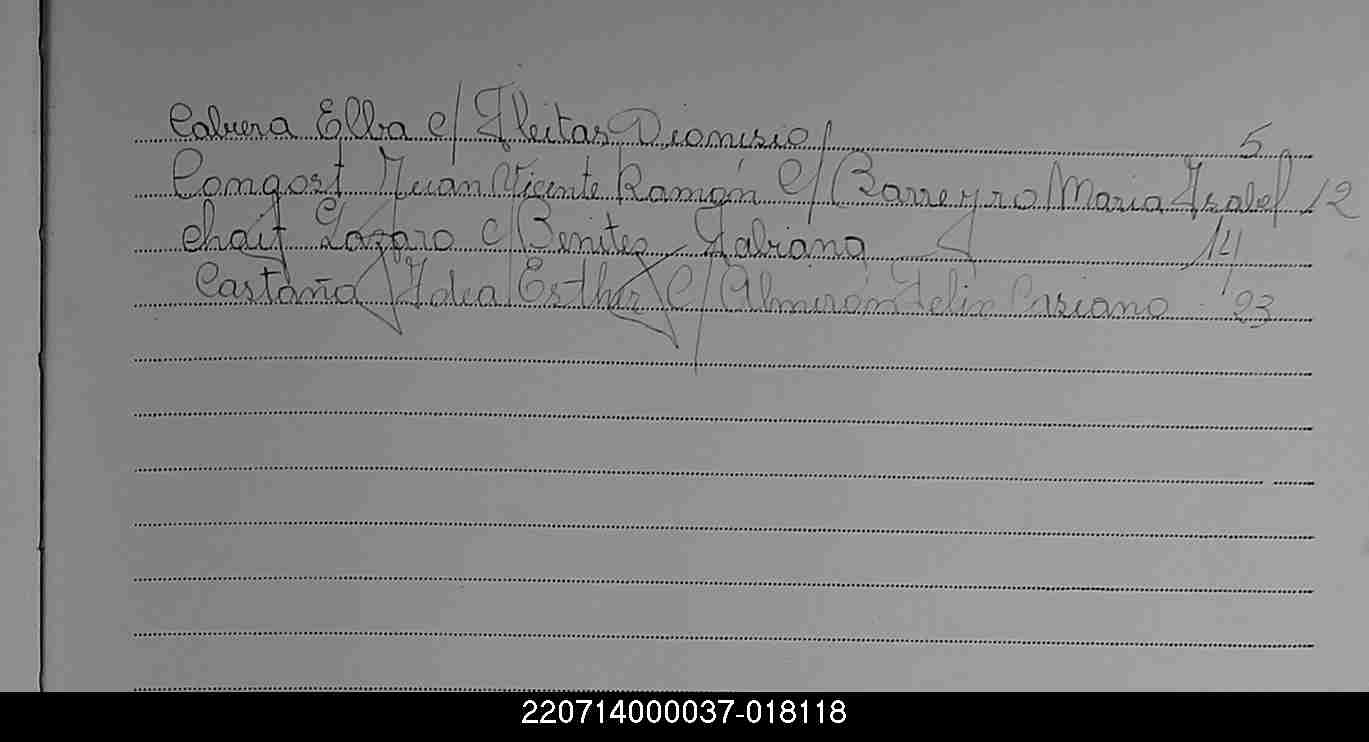 Cabrera Elba c/ Fleitas Dionisio 5
Congost Juan Vicente Ramón c/ Barreyro Maria Isabel 12
Chaij Lazaro c/ Benitez 14
Castaño Idea Esther c/ Almirón Felix Casiano 23
220714000037-018118